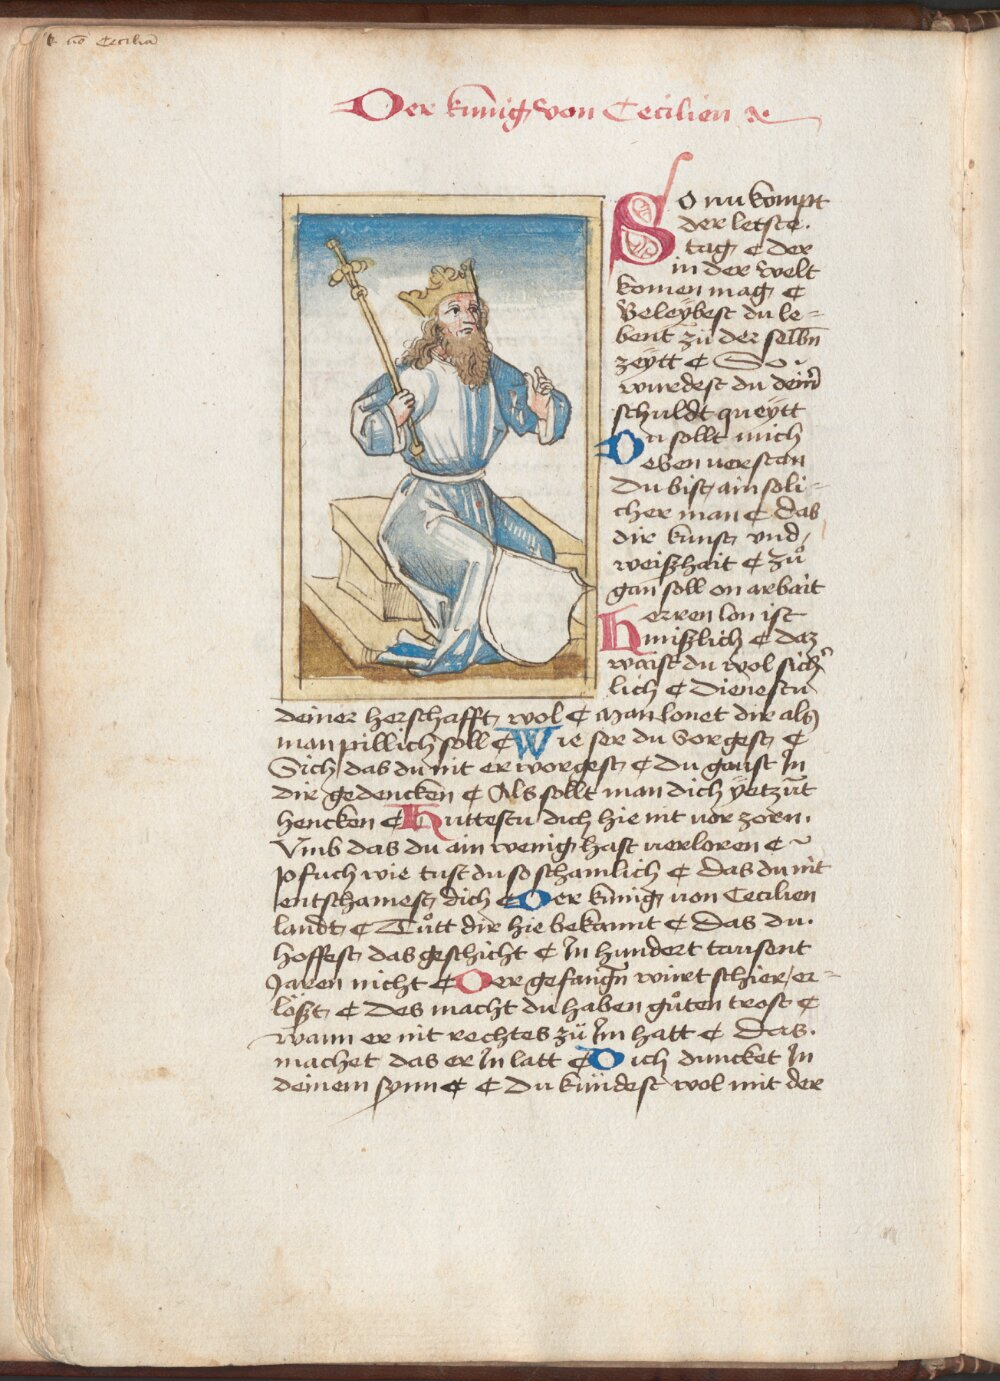 k võ Cecilia
Der künig von Cecilien ⁊c
So nu kompt
der letste.
tag ¢ der
in der welt
komen mag ¢
Beleybest du le=
bent zü der selbn̄
zeytt ¢ So ~
wurdest du dein̄
schuldt queytt
Du sollt mich
eben uerstan
Du bist ain söli=
cher man ¢ das
dir kunst vnd
weißhait ¢ zů
gan soll on arbait
Herren lon ist
mißlich ¢ daz
waist du wol sich'
lich ¢ Dienestu
deiner herschafft wol ¢ Man lonet dir als
man pillich soll ¢ Wie ser du Sorgest ¢
Sich das du nit erworgest ¢ Du gaust In
dir gedencken ¢ Als sollt man dich yetzūt
hencken ¢ Huttestu dich hie nit vor zorn.
Vmb das du ain wenig hast uerloren ¢ ~
pfuch wie tust du so schamlich ¢ das du nit
entschamest dich ¢ Der künig uon Cecilien
landt ¢ Tůtt dir hie bekannt ¢ Das du.
hoffest das geschicht ¢ In hundert tausent
Jaren nicht ¢ Der gefangn̄ württ schier er=
lößt ¢ Des macht du haben gůten trost ¢
wann er nit rechtes zü Im hatt ¢ Das.
machet das er In latt ¢ Dich duncket In
deinem synn ¢ ¢ Du kündest wol mit der